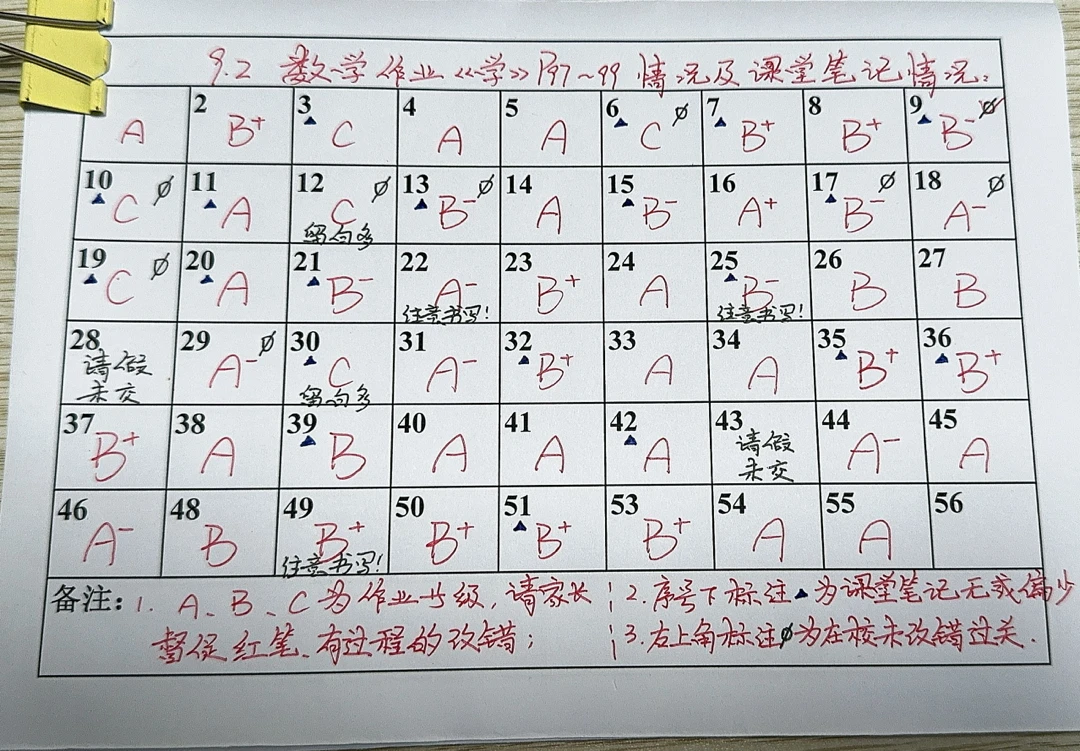 9.2 数学作业《学》P97~99 情况及课堂笔记情况：
A 2 B+ 3 ▲ C 4 A 5 A 6 ▲ C ∅ 7 ▲ B+ 8 B+ 9 ▲ B- ∅
10 ▲ C ∅ 11 ▲ A 12 C ∅ 留白多 13 ▲ B- ∅ 14 A 15 ▲ B- 16 A+ 17 ▲ B- ∅ 18 A- ∅
19 ▲ C ∅ 20 ▲ A 21 ▲ B- 22 A- 注意书写! 23 B+ 24 A 25 ▲ B- 注意书写! 26 B 27 B
28 请假未交 29 A- ∅ 30 ▲ C 留白多 31 A- 32 ▲ B+ 33 A 34 A 35 ▲ B+ 36 ▲ B+
37 B+ 38 A 39 ▲ B 40 A 41 A 42 ▲ A 43 请假未交 44 A- 45 A
46 A- 48 B 49 B+ 注意书写! 50 B+ 51 ▲ B+ 53 B+ 54 A 55 A 56
备注：1. A、B、C为作业等级，请家长
督促红笔、有过程的改错；
2. 序号下标注▲为课堂笔记无或偏少
3. 右上角标注∅为在校未改错过关.